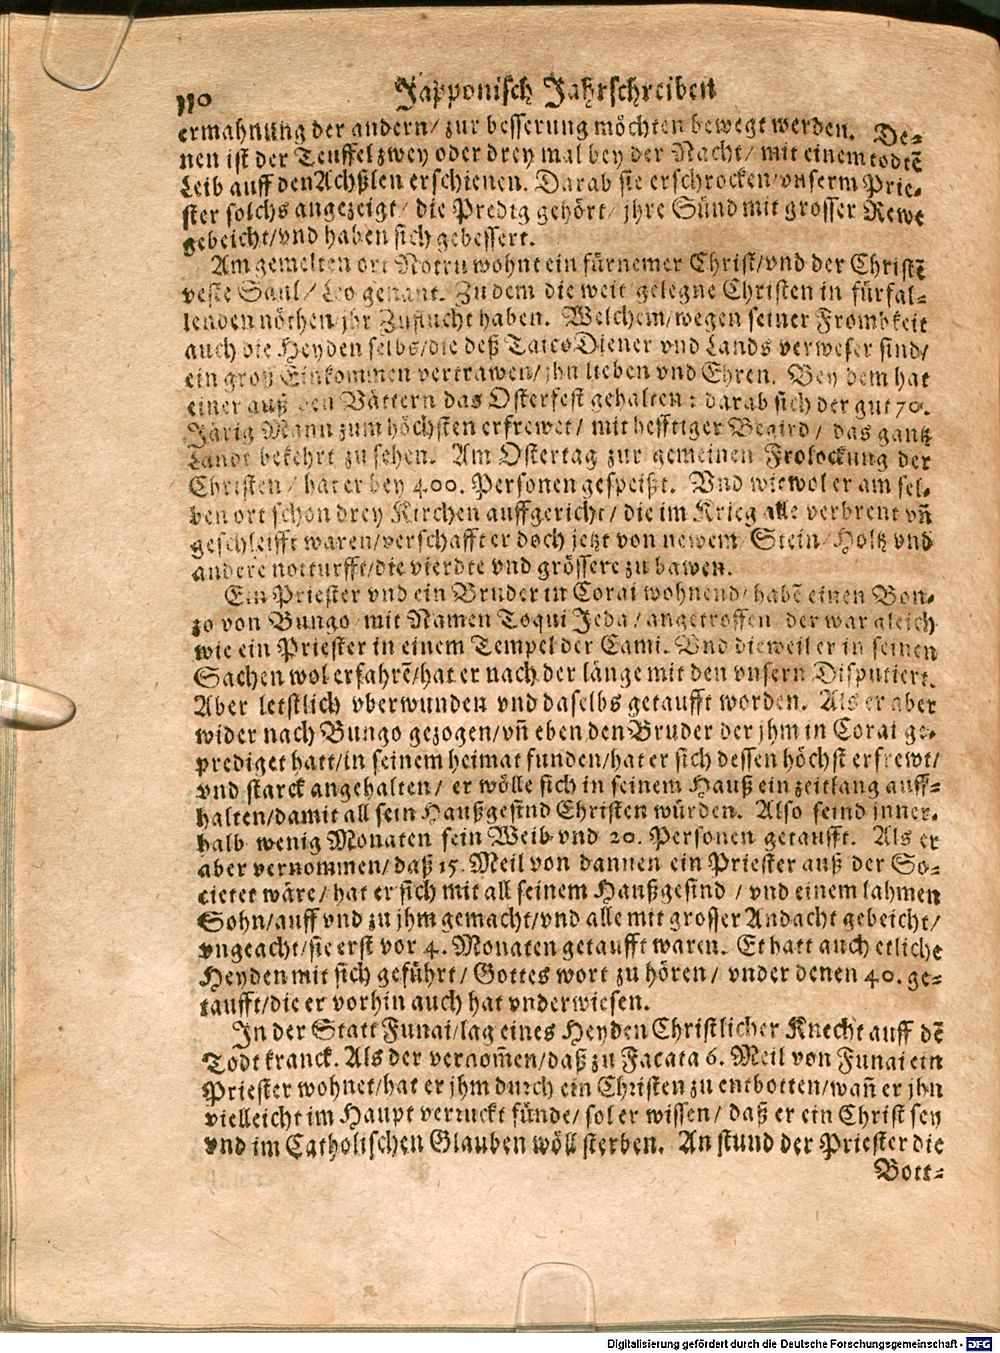 110 Japponisch Jahrschreiben
ermahnung der andern/ zur besserung möchten bewegt werden. De-
nen ist der Teuffel zwey oder drey mal bey der Nacht/ mit einem todtē
Leib auff den Achßlen erschienen. Darab sie erschrocken/vnserm Prie-
ster solchs angezeigt/ die Predig gehört/ jhre Sünd mit grosser Rewe
gebeicht/vnd haben sich gebessert.
Am gemelten ort Notzu wohnt ein fürnemer Christ/vnd der Christē
veste Saul/ Leo genant. Zu dem die weit gelegne Christen in fürfal-
lenden nöthen jhr Zuflucht haben. Welchem/wegen seiner Frombkeit
auch die Heyden selbs/die deß Taico Diener vnd Lands verweser sind/
ein groß Einkommen vertrawen/jhn lieben vnd Ehren. Bey dem hat
einer auß den Vättern das Osterfest gehalten: darab sich der gut 70.
Järig Mann zum höchsten erfrewet/ mit hefftiger Begird/ das gantz
Landt bekehrt zu sehen. Am Ostertag zur gemeinen Frolockung der
Christen/ hat er bey 400. Personen gespeißt. Vnd wiewol er am sel-
ben ort schon drey Kirchen auffgericht/ die im Krieg alle verbrent vñ
geschleifft waren/verschafft er doch jetzt von newem Stein/Holtz vnd
andere notturfft/die vierdte vnd grössere zu bawen.
Ein Priester vnd ein Bruder in Corai wohnend/habē einen Bon-
zo von Bungo/mit Namen Toqui Jeda/angetroffen/ der war gleich
wie ein Priester in einem Tempel der Cami. Vnd dieweil er in seinen
Sachen wol erfahrē/hat er nach der länge mit den vnsern Disputiert.
Aber letstlich vberwunden vnd daselbs getaufft worden. Als er aber
wider nach Bungo gezogen/vñ eben den Bruder der jhm in Corai ge-
prediget hatt/in seinem heimat funden/hat er sich dessen höchst erfrewt/
vnd starck angehalten/ er wölle sich in seinem Hauß ein zeitlang auff-
halten/damit all sein Haußgesind Christen würden. Also seind inner-
halb wenig Monaten sein Weib vnd 20. Personen getaufft. Als er
aber vernommen/daß 15. Meil von dannen ein Priester auß der So-
cietet wäre/ hat er sich mit all seinem Haußgesind/ vnd einem lahmen
Sohn/auff vnd zu jhm gemacht/vnd alle mit grosser Andacht gebeicht/
vngeacht/sie erst vor 4. Monaten getaufft waren. Et hatt auch etliche
Heyden mit sich geführt/ Gottes wort zu hören/ vnder denen 40. ge-
taufft/die er vorhin auch hat vnderwiesen.
In der Statt Funai/lag eines Heyden Christlicher Knecht auff dē
Todt kranck. Als der vernom̄en/daß zu Facata 6. Meil von Funai ein
Priester wohnet/hat er jhm durch ein Christen zu entbotten/wañ er jhn
vielleicht im Haupt verruckt fünde/ sol er wissen/ daß er ein Christ sey
vnd im Catholischen Glauben wöll sterben. An stund der Priester die
Bott-
Digitalisierung gefördert durch die Deutsche Forschungsgemeinschaft - DFG